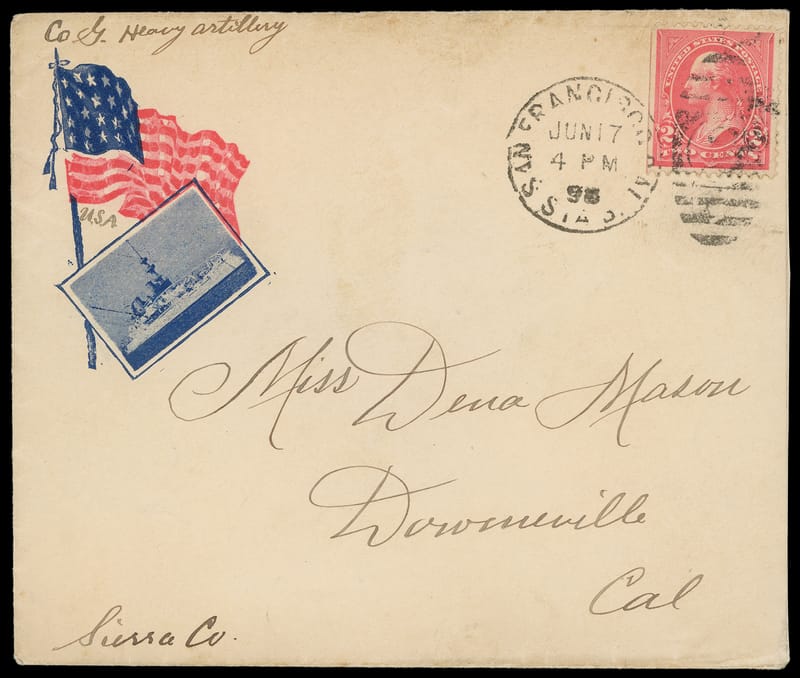 Co G. Heavy artillery
UNITED STATES POSTAGE
2 CENTS 2
SAN FRANCISCO, CAL.
JUN 17
4 PM
98
STA B.
USA
Miss Dena Mason
Downieville
Cal
Sierra Co.